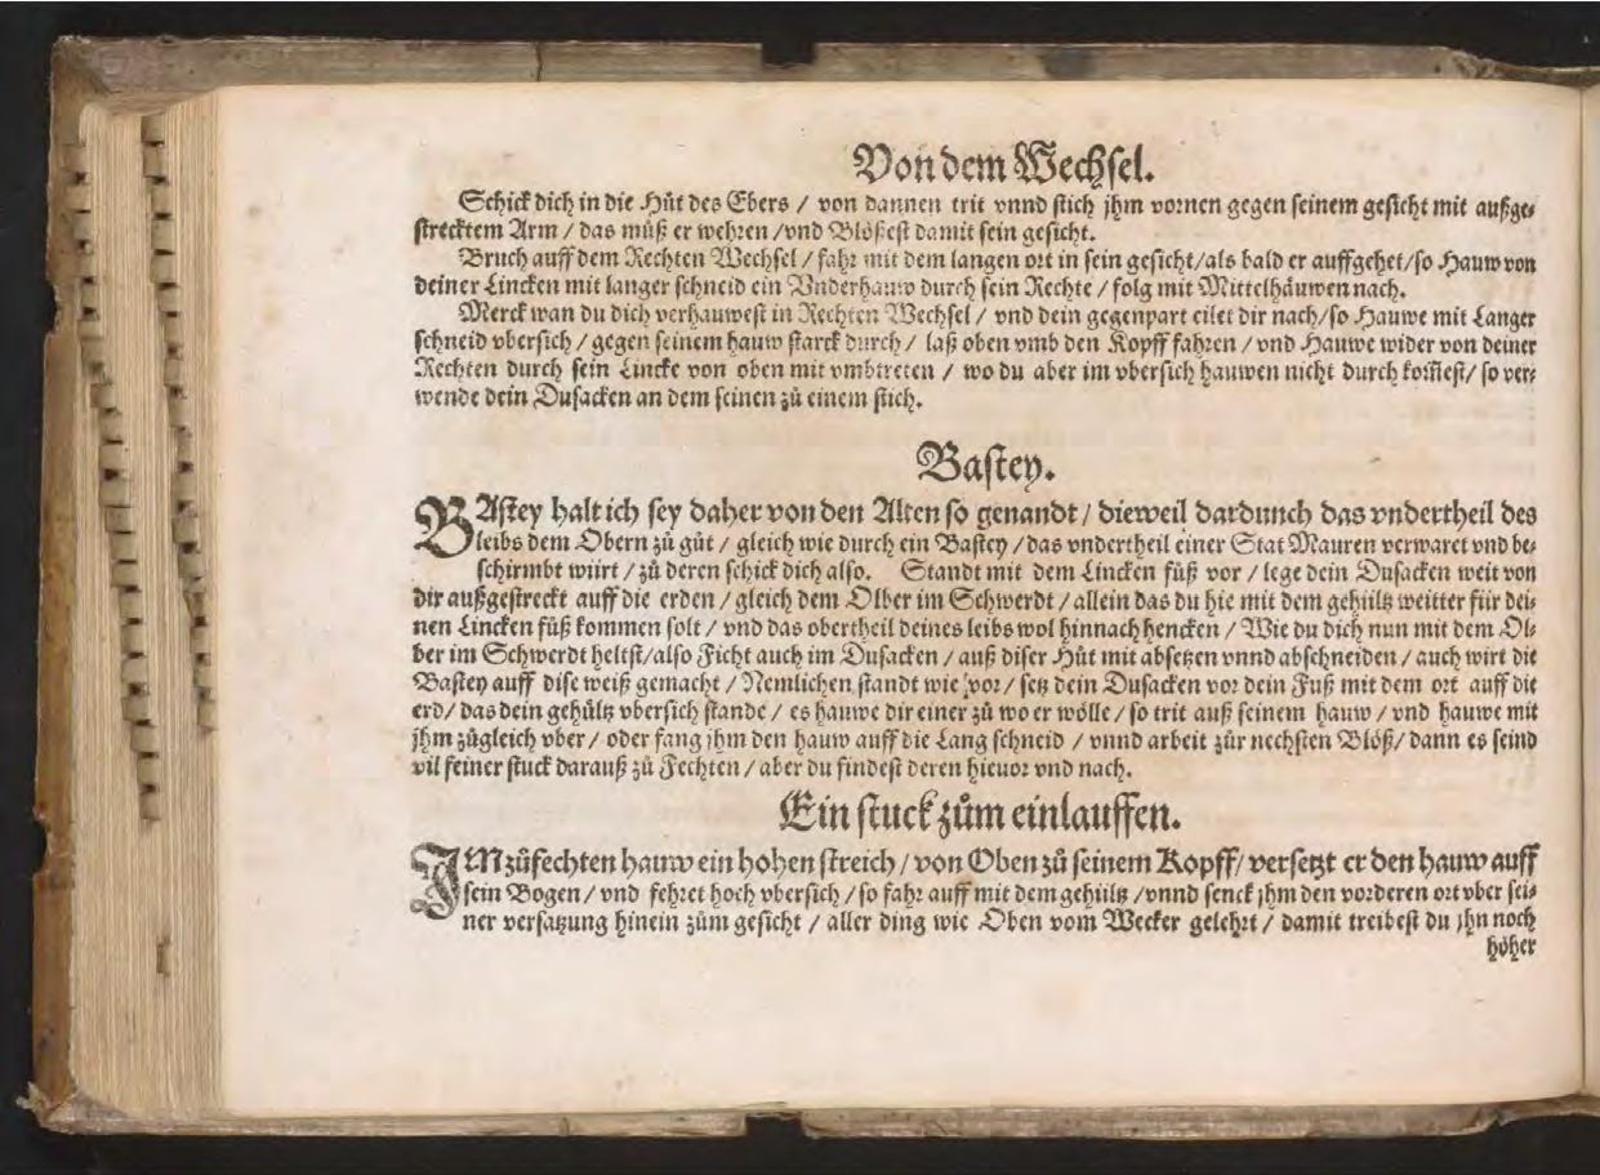 Von dem Wechsel.
Schick dich in die Hůt des Ebers / von dannen trit vnnd stich jhm vornen gegen seinem gesicht mit außge⸗
strecktem Arm / das můß er wehren / vnd Blößest damit sein gesicht.
Bruch auff dem Rechten Wechsel / fahr mit dem langen ort in sein gesicht / als bald er auffgehet / so Hauw von
deiner Lincken mit langer schneid ein Vnderhauw durch sein Rechte / folg mit Mittelhäuwen nach.
Merck wan du dich verhauwest in Rechten Wechsel / vnd dein gegenpart eilet dir nach / so Hauwe mit Langer
schneid vbersich / gegen seinem hauw starck durch / laß oben vmb den Kopff fahren / vnd Hauwe wider von deiner
Rechten durch sein Lincke von oben mit vmbtreten / wo du aber im vbersich hauwen nicht durch kom̃est / so ver⸗
wende dein Dusacken an dem seinen zů einem stich.
Bastey.
BAstey halt ich sey daher von den Alten so genandt / dieweil dardunch das vndertheil des
leibs dem Obern zů gůt / gleich wie durch ein Bastey / das vndertheil einer Stat Mauren verwaret vnd be⸗
schirmbt würt / zů deren schick dich also. Standt mit dem Lincken fůß vor / lege dein Dusacken weit von
dir außgestreckt auff die erden / gleich dem Olber im Schwerdt / allein das du hie mit dem gehültz weitter für dei⸗
nen Lincken fůß kommen solt / vnd das obertheil deines leibs wol hinnach hencken / Wie du dich nun mit dem Ol⸗
ber im Schwerdt heltst / also Ficht auch im Dusacken / auß diser Hůt mit absetzen vnnd abschneiden / auch wirt die
Bastey auff dise weiß gemacht / Nemlichen standt wie vor / setz dein Dusacken vor dein Fuß mit dem ort auff die
erd / das dein gehültz vbersich stande / es hauwe dir einer zů wo er wölle / so trit auß seinem hauw / vnd hauwe mit
jhm zůgleich vber / oder fang jhm den hauw auff die Lang schneid / vnnd arbeit zůr nechsten Blöß / dann es seind
vil feiner stuck darauß zů Fechten / aber du findest deren hieuor vnd nach.
Ein stuck zům einlauffen.
IM zůfechten hauw ein hohen streich / von Oben zů seinem Kopff / versetzt er den hauw auff
sein Bogen / vnd fehret hoch vbersich / so fahr auff mit dem gehültz / vnnd senck jhm den vorderen ort vber sei⸗
ner versatzung hinein zům gesicht / aller ding wie Oben vom Wecker gelehrt / damit treibest du jhn noch
höher